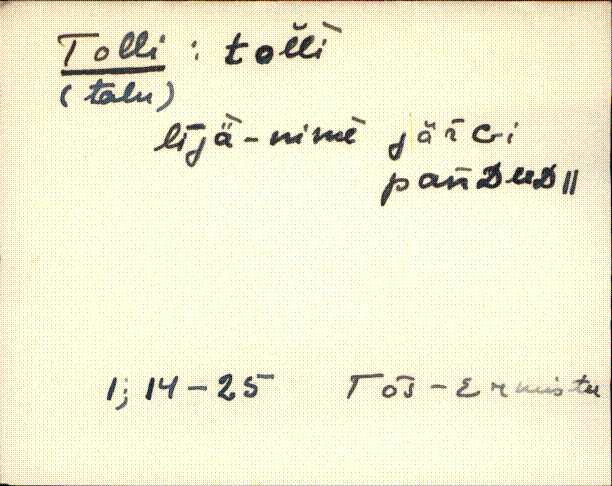 Tolli : tol̆l̆ì
(talu)
lījä̀-nimè järGi
panDuD ||
1; 14-25 Tõs-Ermistu